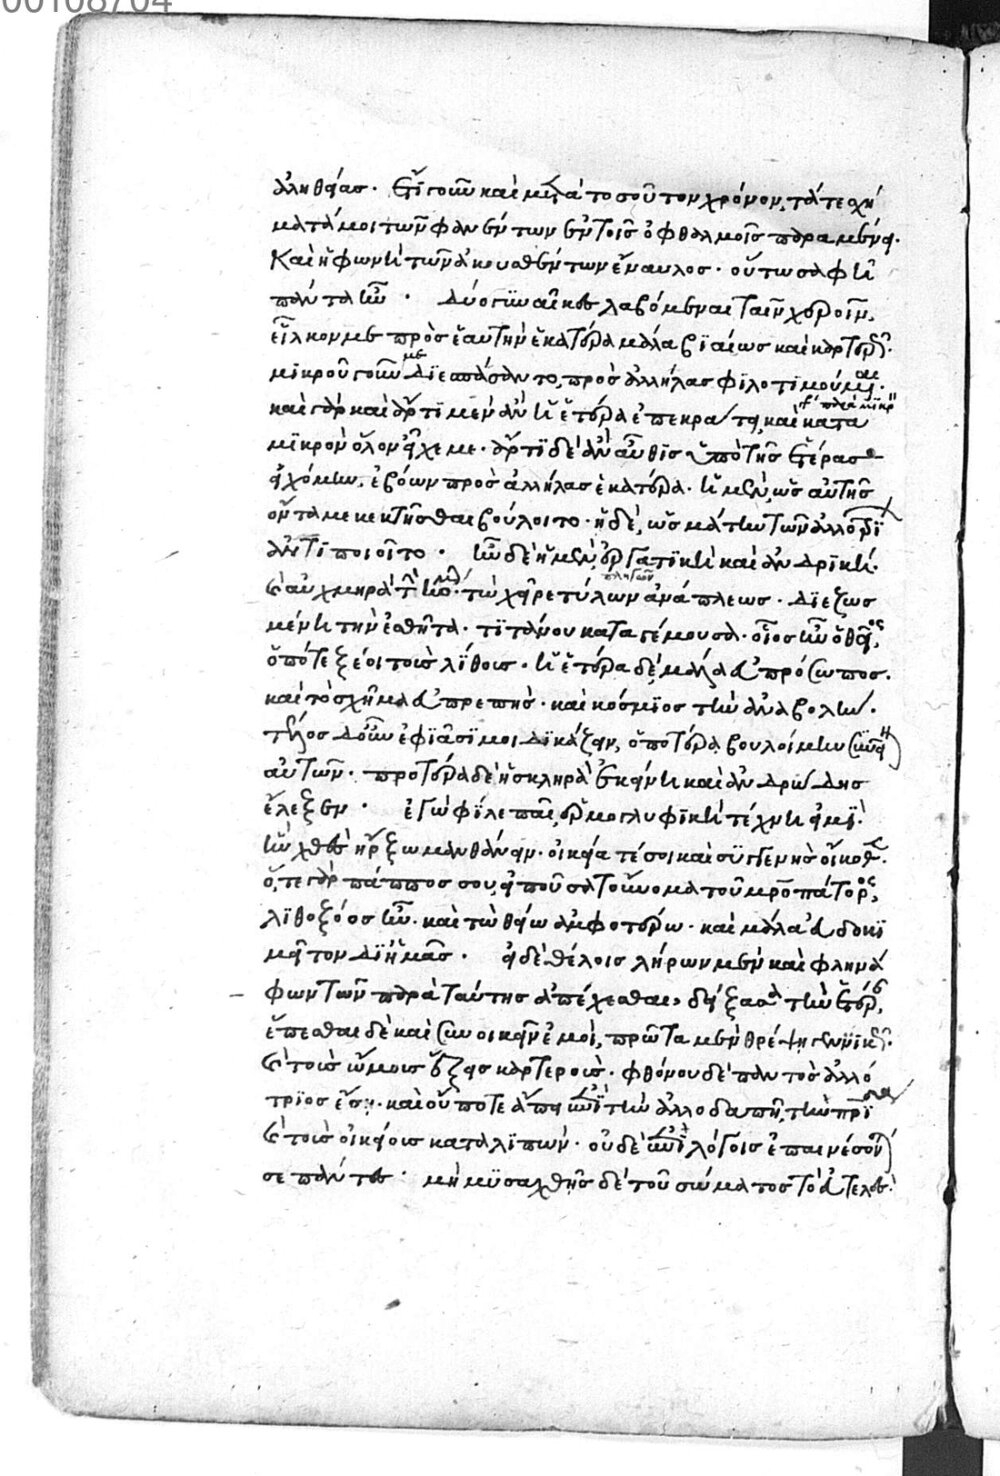 00108704
ἀληθείας. ἔτι γοῦν καὶ μετὰ τοσοῦτον χρόνον, τά τε σχή
ματά μοι τῶν φανέντων ἐν τοῖς ὀφθαλμοῖς παραμένει.
καὶ ἡ φωνὴ τῶν ἀκουσθέντων ἔναυλος. οὕτω σαφῆ
πάντα ἦν. Δύο γυναῖκες λαβόμεναι ταῖν χεροῖν,
εἷλκόν με πρὸς ἑαυτὴν ἑκατέρα μάλα βιαίως καὶ καρτερῶς.
μικροῦ γοῦν με διεσπάσαντο, πρὸς ἀλλήλας φιλοτιμούμεναι.
καὶ γὰρ καὶ ἄρτι μὲν ἂν ἡ ἑτέρα ἐπεκράτει, καὶ κατὰ
μικρὸν ὅλον εἶχέ με. ἄρτι δὲ ἂν αὖθις ὑπὸ τῆς ἑτέρας
εἰχόμην. ἐβόων πρὸς ἀλλήλας ἑκατέρα. ἡ μὲν, ὡς αὐτῆς
ὄντα με κεκτῆσθαι βούλοιτο. ἡ δέ, ὡς μάτην τῶν ἀλλοτρί
ἀντιποιοῖτο. ἦν δὲ ἡ μὲν, ἐργατικὴ καὶ ἀνδρικὴ.
καὶ αὐχμηρὰ τὴν κόμην. τὼ χεῖρε τύλων ἀνάπλεως. διεζωσ
μένη τὴν ἐσθῆτα. τιτάνου καταγέμουσα. οἷος ἦν ὁ θεῖος,
ὁπότε ξέοι τοὺς λίθους. ἡ ἑτέρα δὲ μάλα εὐπρόσωπος.
καὶ τὸ σχῆμα εὐπρεπὴς. καὶ κόσμιος τὴν ἀναβολήν.
τέλος δ' οὖν ἐφιᾶσί μοι δικάζειν, ὁποτέρᾳ βουλοίμην συνεῖναι
αὐτῶν. προτέρα δὲ ἡ σκληρὰ ἐκείνη καὶ ἀνδρώδης
ἔλεξεν. ἐγὼ φίλε παῖ, ἑρμογλυφικὴ τέχνη εἰμὶ.
ἣν χθὲς ἤρξω μανθάνειν. οἰκεία τέ σοι καὶ συγγενὴς οἴκοθεν.
ὅ, τε γὰρ πάππος σου, εἰποῦσα τοὔνομα τοῦ μητροπάτορος,
λιθοξόος ἦν. καὶ τὼ θείω ἀμφοτέρω. καὶ μάλα εὐδοκι
μεῖτον δι' ἡμᾶς. εἰ δὲ θέλοις λήρων μὲν καὶ φληνά
φων τῶν παρὰ ταύτης ἀπέχεσθαι, δείξασα τὴν ἑτέραν,
ἕπεσθαι δὲ καὶ συνοικεῖν ἐμοὶ, πρῶτα μὲν θρέψῃ γεννικῶς.
καὶ τοὺς ὤμους ἕξεις καρτερούς. φθόνου δὲ παντὸς ἀλλό
τριος ἔσῃ. καὶ οὔποτε ἄπει ἐπὶ τὴν ἀλλοδαπὴν, τὴν πατρίδα
καὶ τοὺς οἰκείους καταλιπών. οὐδὲ ἐπὶ λόγοις ἐπαινέσονταί
σε πάντες. μὴ μυσαχθῇς δὲ τοῦ σώματος τὸ εὐτελὲς.